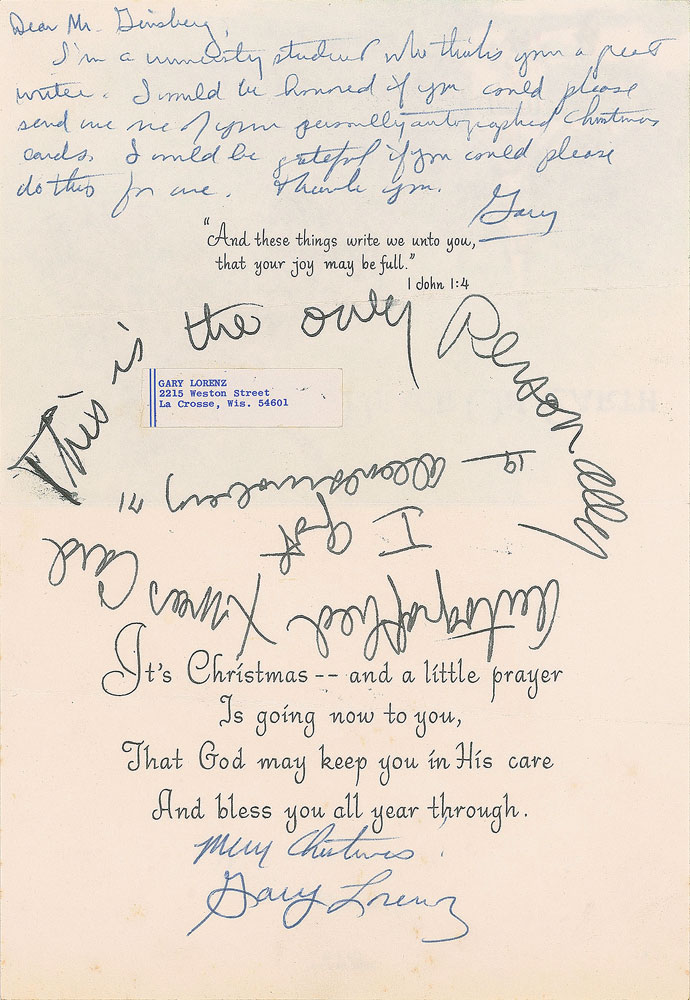 Dear Mr. Ginsberg,
I'm a university student who thinks your a great
writer. I would be honored if you could please
send me one of your personally autographed Christmas
cards. I would be grateful if you could please
do this for me. Thank you.
Gary
"And these things write we unto you,
that your joy may be full."
1 John 1:4
This is the only Personally
Autographed X-mas Card
I got
Allen Ginsberg '71
GARY LORENZ
2215 Weston Street
La Crosse, Wis. 54601
It's Christmas -- and a little prayer
Is going now to you,
That God may keep you in His care
And bless you all year through.
Merry Christmas !
Gary Lorenz